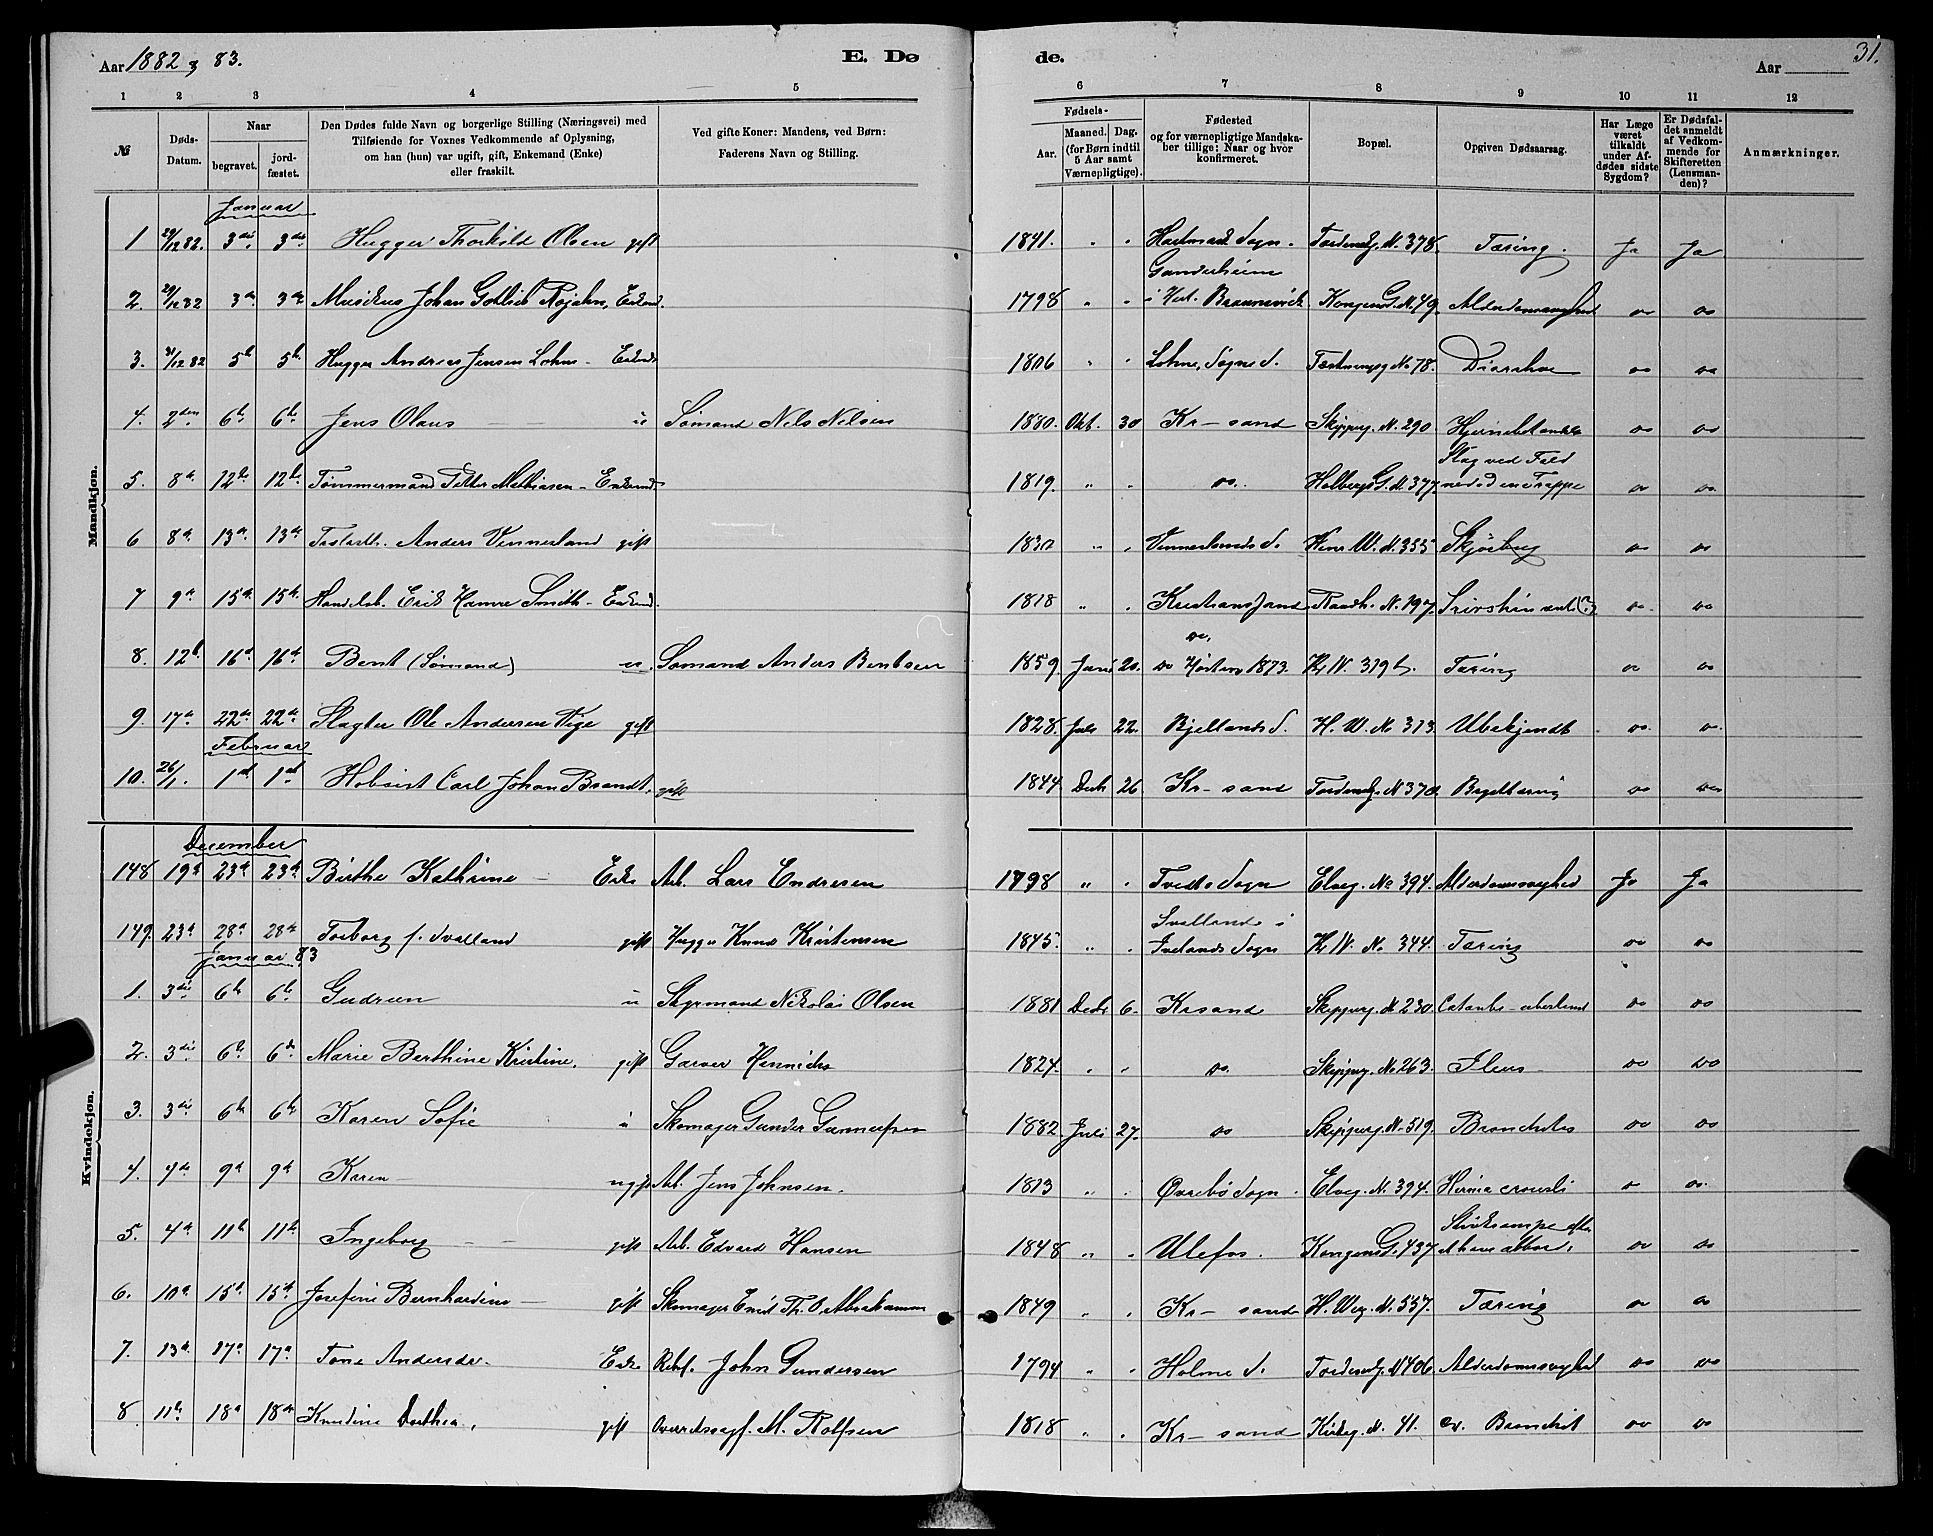 Aar 1882 & 83.
E. Dø
de.
Aar
31.
1 2 3 4 5 6 7 8 9 10 11 12
№
Døds-Datum.
Naar
begravet.
jord-fæstet.
Den Dødes fulde Navn og borgerlige Stilling (Næringsvei) med
Tilføiende for Voxnes Vedkommende af Oplysning,
om han (hun) var ugift, gift, Enkemand (Enke)
eller fraskilt.
Ved gifte Koner: Mandens, ved Børn:
Faderens Navn og Stilling.
Fødsels-
Aar.
Maaned. Dag.
(for Børn indtil
5 Aar samt
Værnepligtige).
Fødested
og for værnepligtige Mandska-
ber tillige: Naar og hvor
konfirmeret.
Bopæl.
Opgiven Dødsaarsag.
Har Læge
været
tilkaldt
under Af-
dødes sidste
Sygdom?
Er Dødsfal-
det anmeldt
af Vedkom-
mende for
Skifteretten
(Lensman-
den)?
Anmærkninger.
Mandkjøn.
Januar
1 29/12 82. 3die 3die Hugger Thorkild Olsen gift 1841. " " Hartmark Sogn. Tordensg. N. 378. Tæring. Ja Ja
Ganderheim
2. 29/12 82 3die 3die Musikus Johan Gotlieb Rojahn, Enkem. 1798 " " i Hert. Braunsvick Kongens G. N. 49. Alderdomssvaghed do do
3. 31/12 82 5te 5te Hugger Andreas Jensen Lohne - Enkem. 1806 " " Lohne, Søgne S. Tordensg No 78. Diarrhoe do do
4. 2den 6te 6te Jens Olaus u Sømand Nils Nilsen 1880. Okt. 30 Kr-sand Skipperg. N. 290 Hjernebetændelse do do
Slag ved Fald
5. 8de 12te 12te Tømmermand Petter Mathiasen - Enkem. 1819. " " do. Holbergs G. N. 377. ned ad en Trappe do do
6 8de 13de 13de Anders Vennesland gift 183 " " Vennesland S. N. 355 Skjørbug do do
7 9de 15de 15de Handelsb. Erik Hamre Smith - Enkem. 1818 " " Kristianssand Raadh. N. 197. do do
do.
8. 12te 16de 16de Bent (Sømand) u. Sømand Anders Bentsen 1859. Juni 20. do Høsten 1873. H. W. 319 b. Tæring do do
9. 17de 22de 22de Slagter Ole Andersen Vige gift 1828. Juli 22. Bjellands S. H. W. No 313. Ubekjendt do. do.
Februar
10. 26/1. 1ste 1ste Hoboist Carl Johan Brandt. gift 1844 Decbr 26 Kr-sand Tordensg. N 370. Brysttæring do do
Kvindekjøn.
December
148 19de 23de 23de Birthe Kathrine - Enke Arb. Lars Endresen 1798 " " Tveds Sogn Elveg. No 394. Alderdomssvaghed Ja Ja
Svallands i
149. 23de 28de 28de Torborg f. Svalland gift Hugger Knud Kristensen 1845. " " Ivelands Sogn H. W. No 344. Tæring do do
Januar 83
1. 3die 6te 6te Gudrun u Styrmand Nikolai Olsen 1881 Decbr 6. Krsand Skipperg. N. 230. do do
2. 3die 6te 6te Marie Berthine Kristine. gift Garver Hennichs 1824. " " do. Skipperg. No 263. Ileus - do do
3. 3die 6te 6te Karen Sofie u Skomager Gunder Gunneufsen 1882 Juli 27. do Skipperg. N. 519. Bronchitis do do
4. 4de 9de 9de Karen - ugift Arb. Jens Johnsen. 1813 " " Øvrebø Sogn. Elveg. N. 394. Hernia cruralis do do.
5. 4de 11te 11te Ingeborg gift Arb. Edvard Hansen 1848 " " Ulefos. Kongens G. 437. do do
6. 10de 15de 15de Josefine Bernhardine - gift Skomager Emil Th. O. Abrahamsen 1849 " " Kr-sand H. Weg. N. 557. Tæring do do
7. 13de 17de 17de Tone Andersdr. Enke John Gundersen 1794 " " Holme S. Tordensg. N 406. Alderdomssvaghed do do
8 11te 18de 18de Knudine Dorthea, gift Overretssagf. M. Rolfsen 1818 " " Kr-sand Kirkeg. N. 41. do do